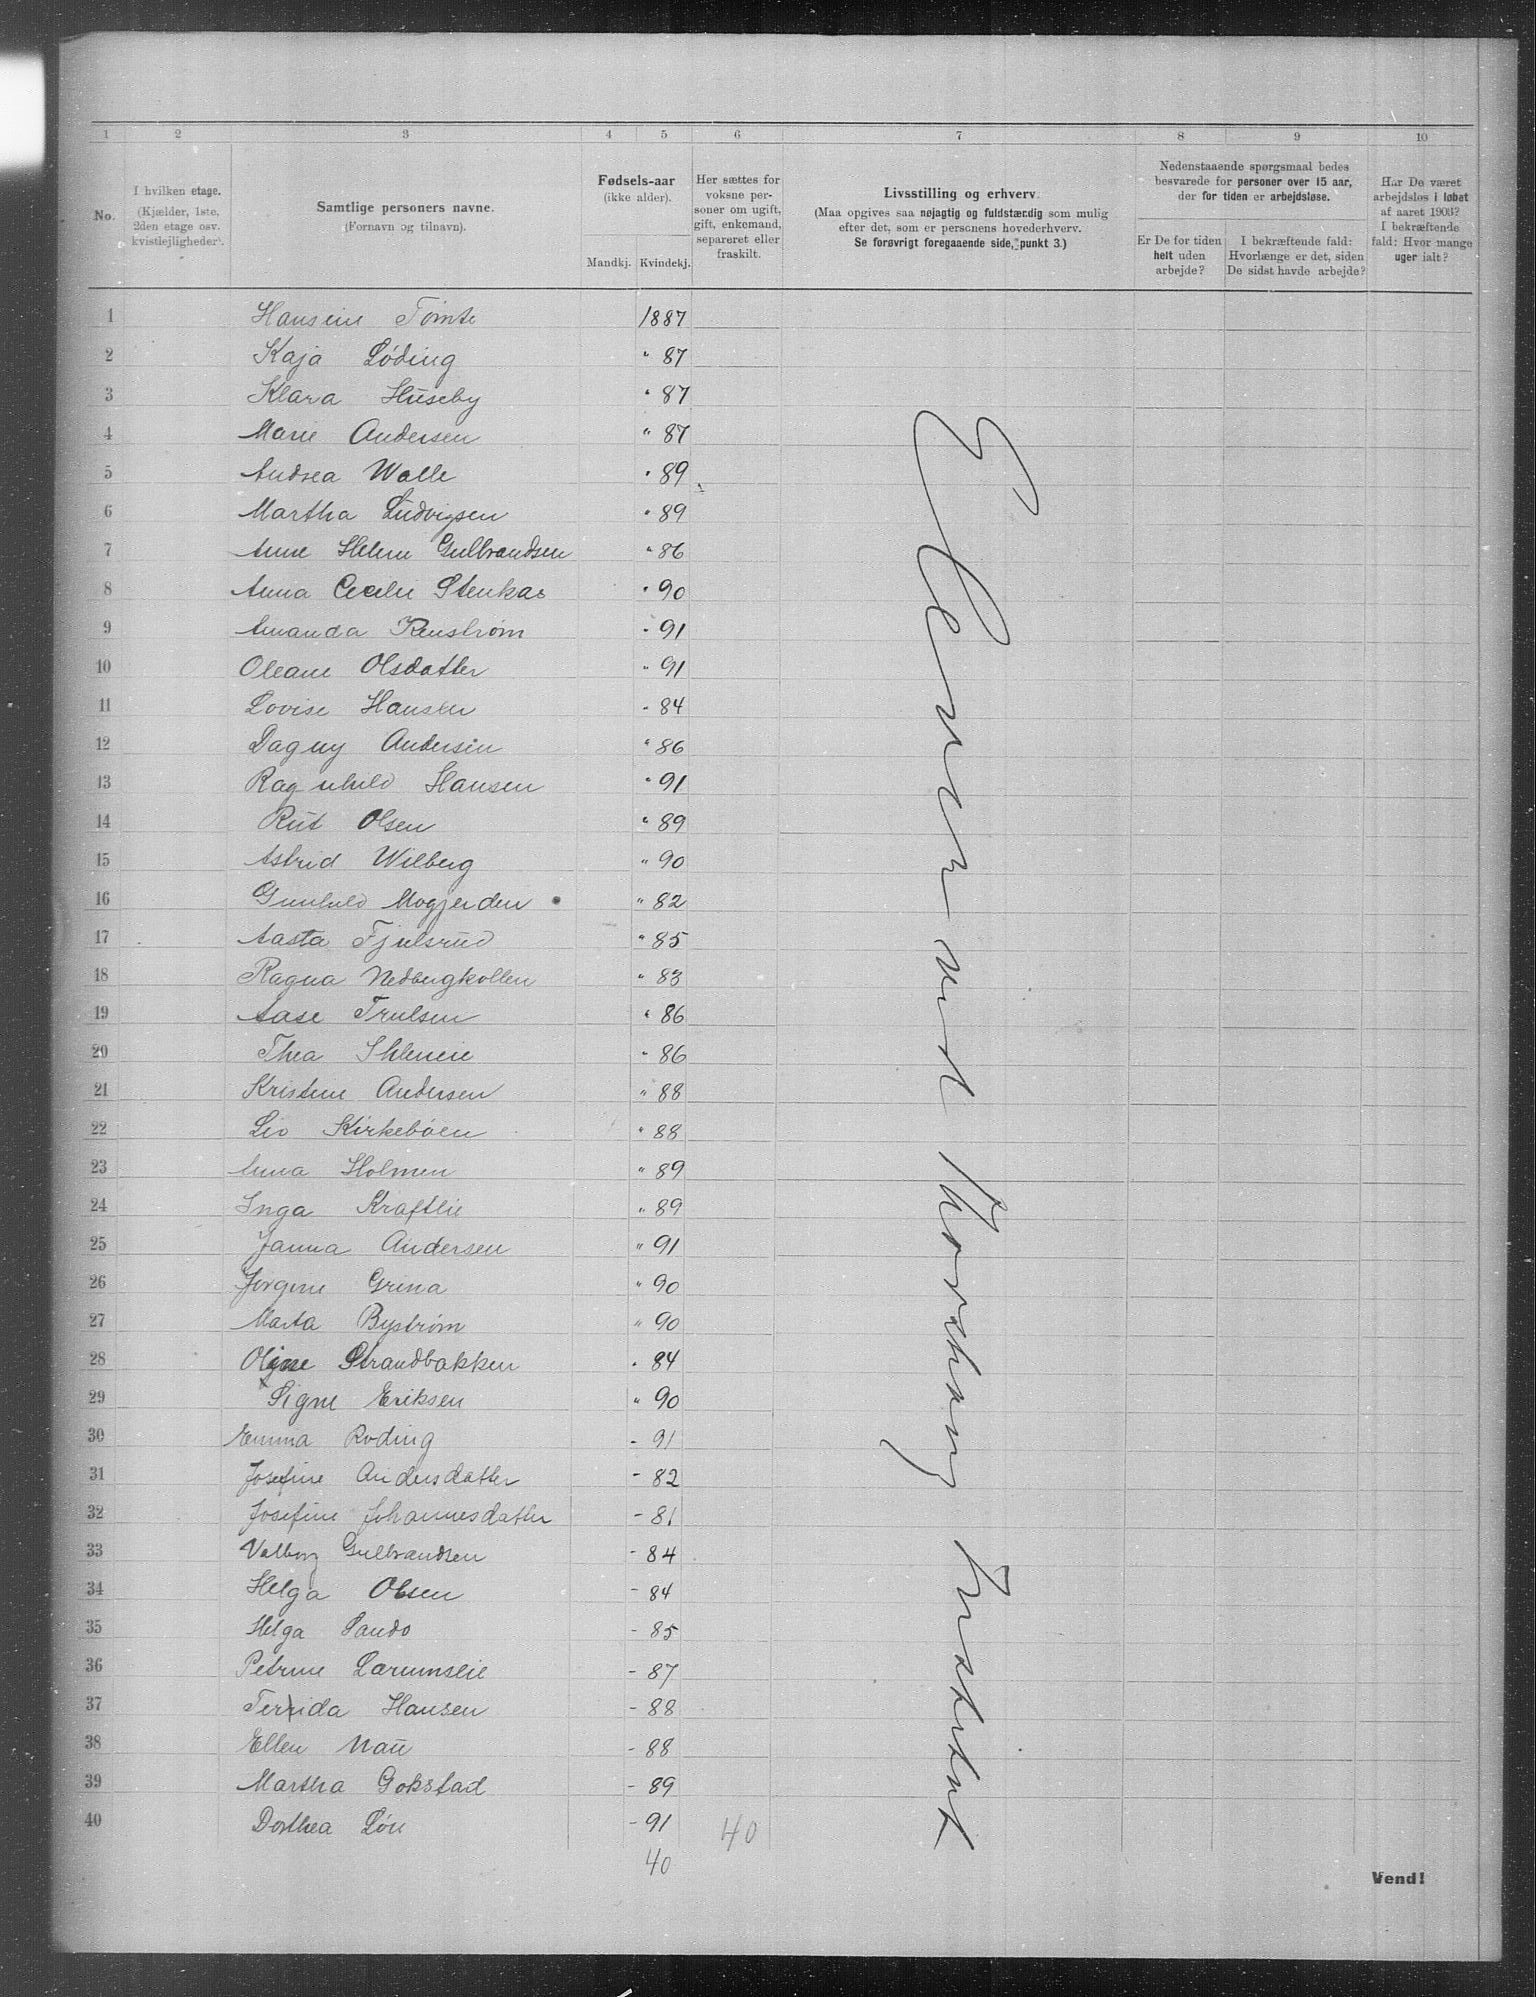 1 2 3 4 5 6 7 8 9 10
No.
I hvilken etage.
(Kjælder, 1ste,
2den etage osv.
kvistlejligheder).
Samtlige personers navne.
(Fornavn og tilnavn).
Fødsels-aar
(ikke alder).
Mandkj. Kvindekj.
Her sættes for
voksne per-
soner om ugift,
gift, enkemand,
separeret eller
fraskilt.
Livsstilling og erhverv.
(Maa opgives saa nøjagtig og fuldstændig som mulig
efter det, som er personens hovederhverv.
Se forøvrigt foregaaende side, punkt 3.)
Nedenstaaende spørgsmaal bedes
besvarede for personer over 15 aar,
der for tiden er arbejdsløse.
Er De for tiden
helt uden
arbejde?
I bekræftende fald:
Hvorlænge er det, siden
De sidst havde arbejde?
Har De været
arbejdsløs i løbet
af aaret 1903?
I bekræftende
fald: Hvor mange
uger ialt?
1 Hansine Tømte 1887
2 Kaja Løding " 87
3 Klara Huseby " 87
4 Marie Andersen " 87
5 Andrea Walle " 89
6 Martha Ludvigsen " 89
7 Anne Helene Gulbrandsen " 86
8 Anna Cecilie Stenkas " 90
9 Amanda Renstrøm " 91
10 Oleane Olsdatter " 91
11 Lovise Hansen " 84
12 Dagny Andersen " 86
13 Ragnhild Hansen " 91
14 Rut Olsen " 89
15 Astrid Wilberg " 90
16 Gunhild Mogjerden " 82
17 Aasta Fjulsrud " 85
18 Ragna Nedbergkollen " 83
19 Aase Trulsen " 86
20 Thea " 86
21 Kristine Andersen " 88
22 Liv Kirkebøen " 88
23 Anna Holmen " 89
24 Inga Kraftlie " 89
25 Janna Andersen " 91
26 Jørgine Grina " 90
27 Marta Byström " 90
28 Oline Strandbakken " 84
29 Signe Eriksen " 90
30 Emma Roding - 91
31 Josefine Andersdatter - 82
32 Josefine Johannesdatter - 81
33 Valborg Gulbrandsen - 84
34 Helga Olsen - 84
35 Helga Sando - 85
36 Petrine - 87
37 Hansen - 88
38 Ellen Mau - 88
39 Martha Gokstad - 89
40 Dorthea Løn - 91 40
40
Elever ved Hvorslang Institut
Vend!